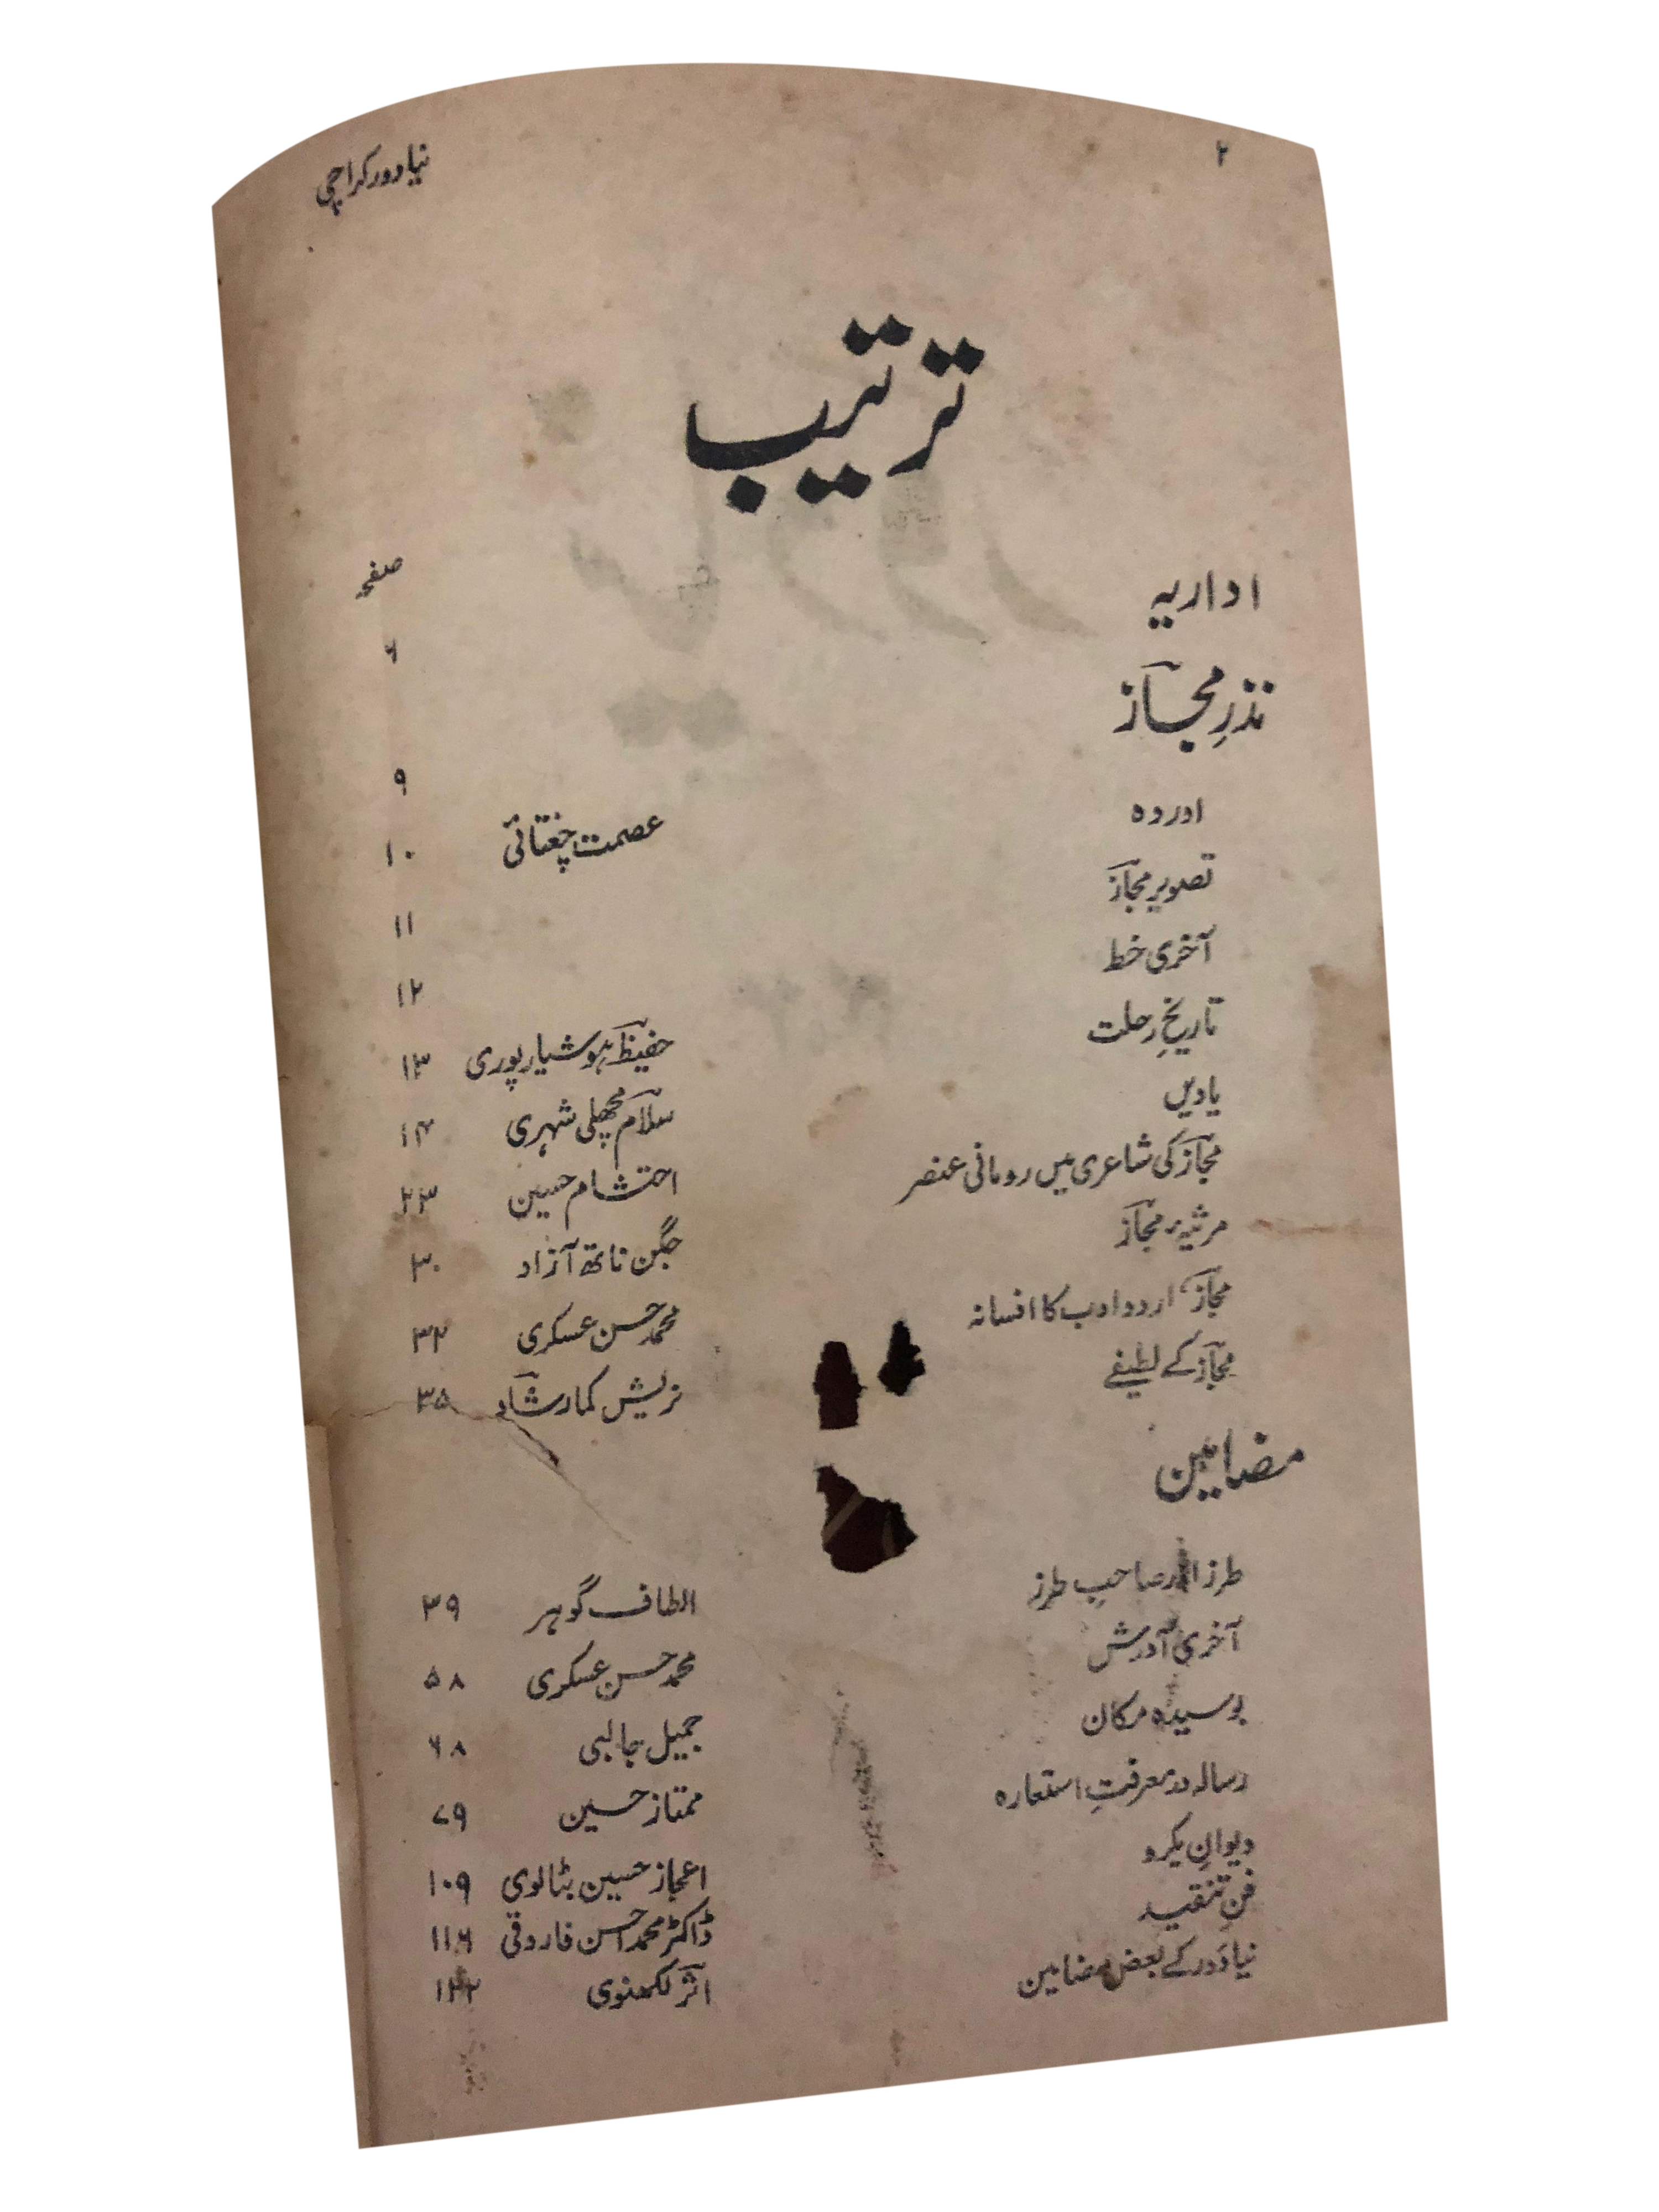 ۲ نیا دور کراچی
ترتیب
صفحہ
اداریہ ۶
نذرِ مجاز
۹
اور وہ عصمت چغتائی ۱۰
تصویر مجاز ۱۱
آخری خط ۱۲
تاریخِ رحلت حفیظ ہوشیارپوری ۱۳
یادیں سلام مچھلی شہری ۱۴
مجاز کی شاعری میں رومانی عنصر احتشام حسین ۲۳
مرثیہ مجاز جگن ناتھ آزاد ۳۰
مجاز، اردو ادب کا افسانہ محمد حسن عسکری ۳۲
مجاز کے لطیفے نریش کمار شاد ۳۵
مضامین
طرز اور صاحب طرز الطاف گوہر ۳۹
آخری آدرش محمد حسن عسکری ۵۸
بوسیدہ مکان جمیل جالبی ۶۸
رسالہ در معرفتِ استعارہ ممتاز حسین ۷۹
دیوانِ یکرو اعجاز حسین بٹالوی ۱۰۹
فنِ تنقید ڈاکٹر محمد احسن فاروقی ۱۱۶
نیا دَور کے بعض مضامین اثر لکھنوی ۱۲۲